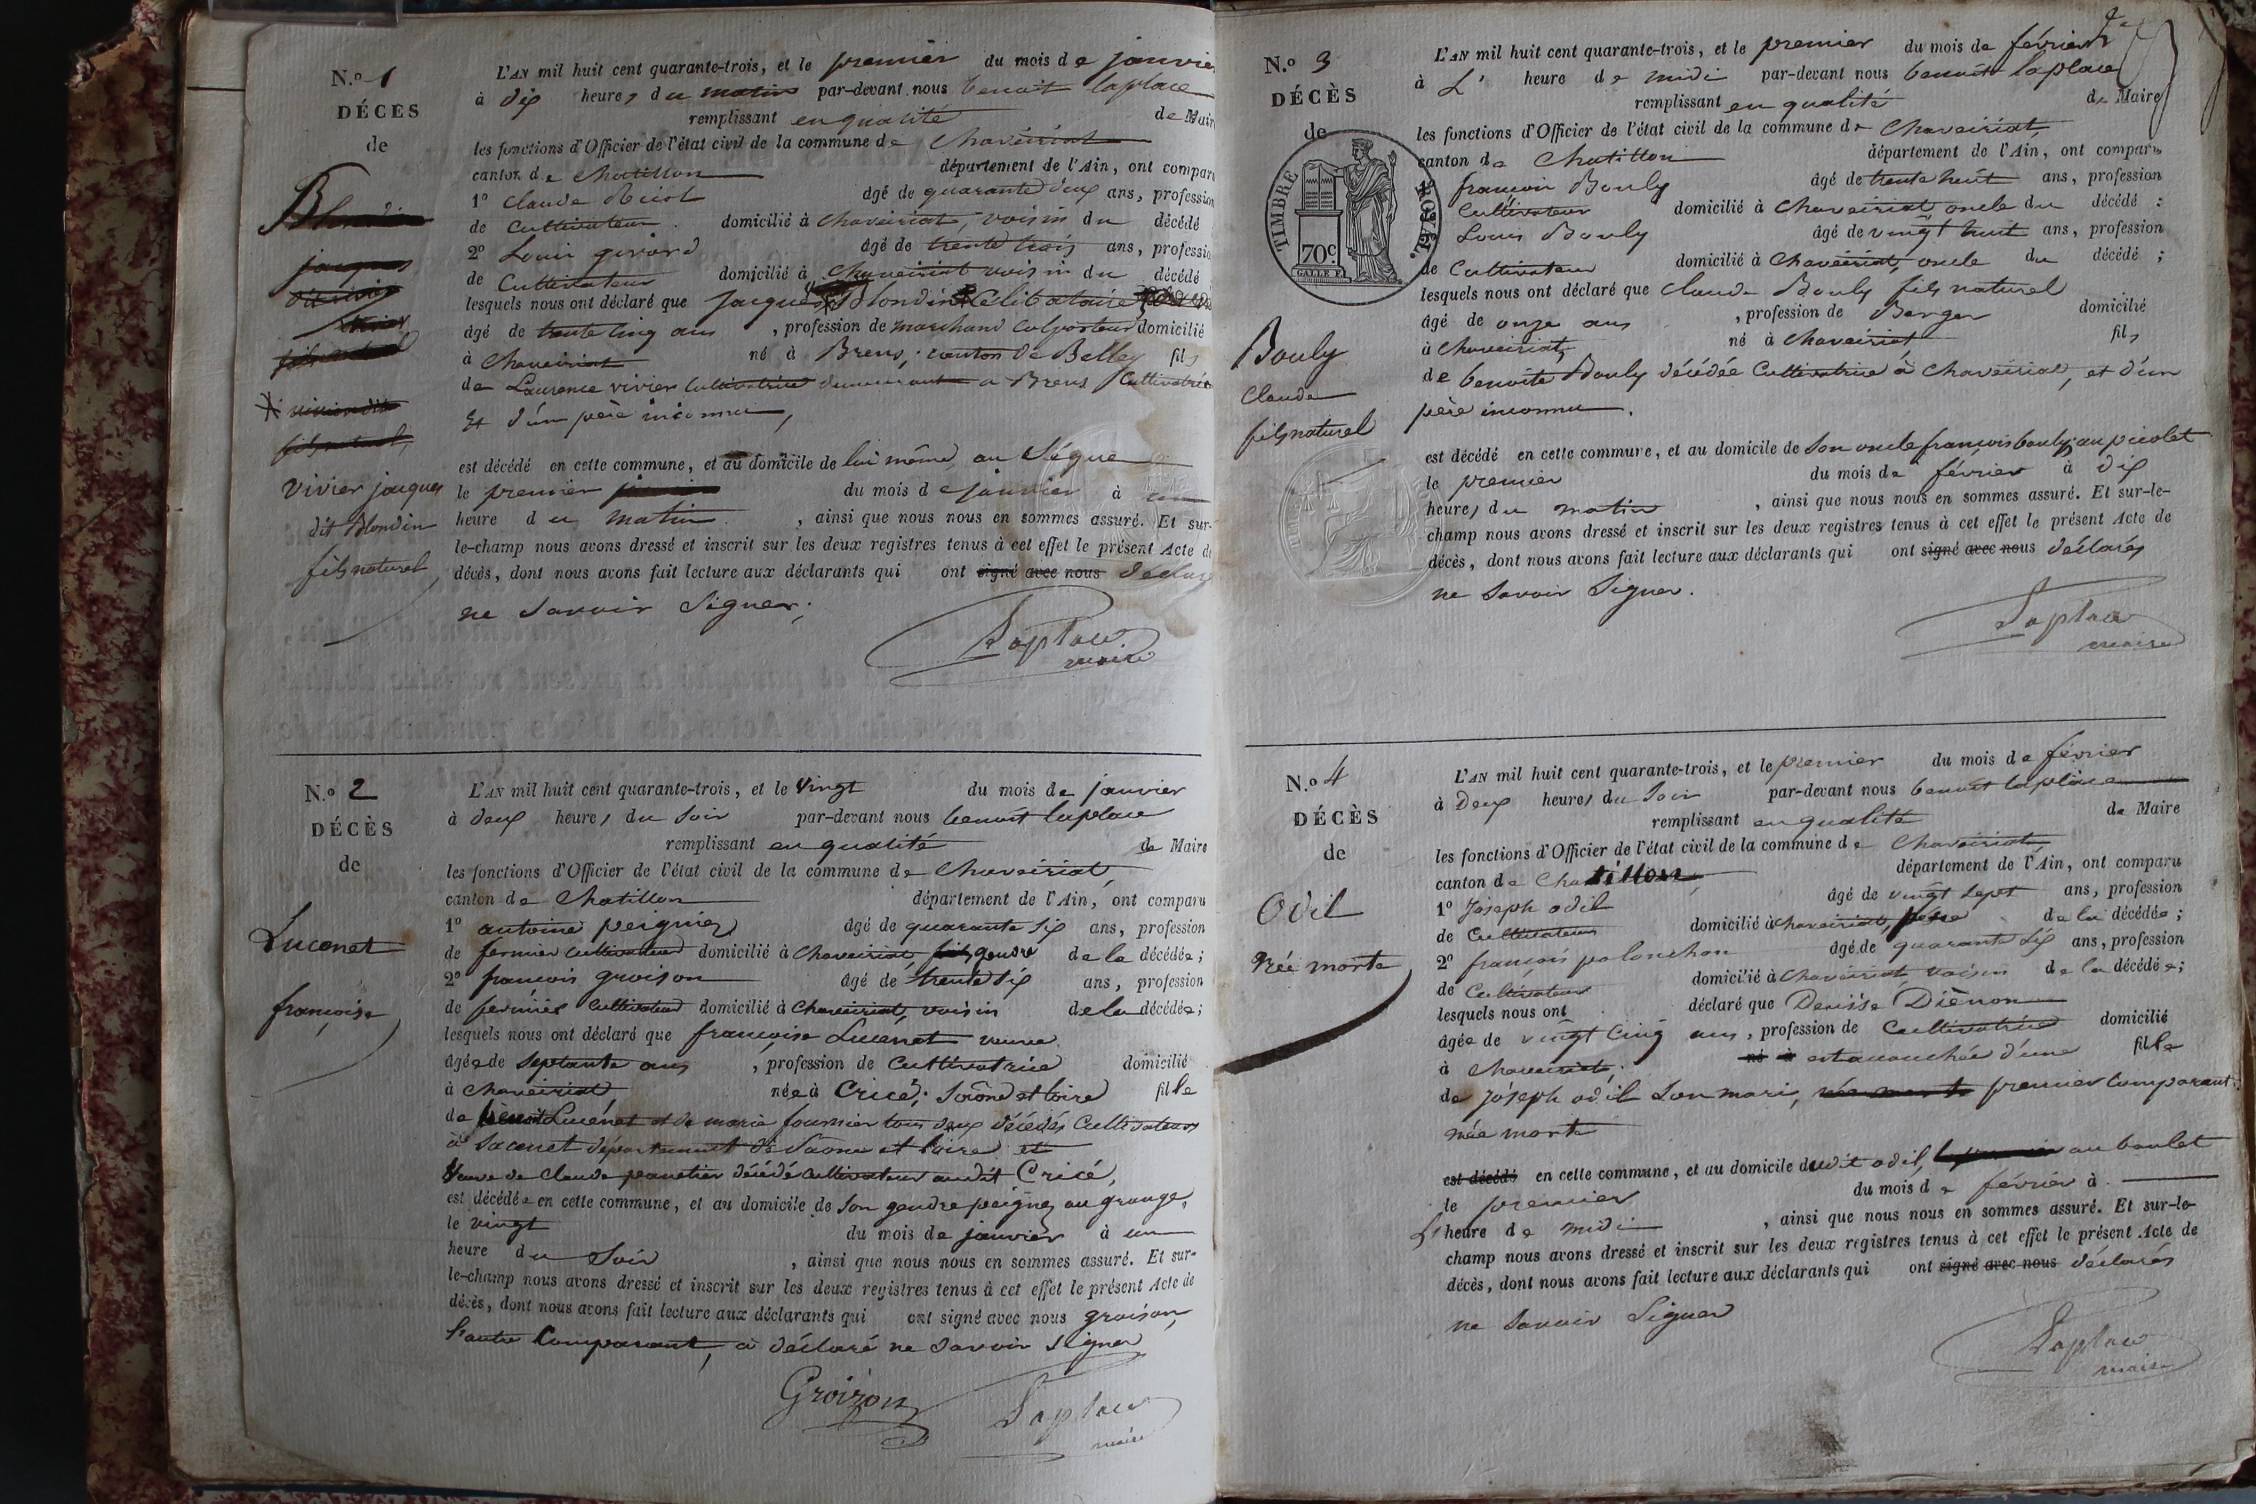 N.o 1
DÉCES
de
Blondin
jacques
fils naturel
vivier jacques
dit Blondin
fils naturel
L'AN mil huit cent quarante-trois, et le premier du mois de janvier
à dix heures du matin par-devant nous benoit laplace
remplissant en qualité de Maire
les fonctions d'Officier de l'état civil de la commune de Chaveiriat
canton de Chatillon département de l'Ain, ont comparu
1o Claude âgé de quarante deux ans, profession
de Cultivateur domicilié à Chaveiriat, voisin du décédé
2o Louis girard âgé de trente trois ans, profession
de Cultivateur domicilié à Chaveiriat voisin du décédé
lesquels nous ont déclaré que jacques Blondin Célibataire
âgé de trente cinq ans, profession de marchand colporteur domicilié
à Chaveiriat né à Brens, canton de Belley fils
de Laurence vivier Cultivatrice demeurant a Brens Cultivatrice
Et d'un père inconnu,
est décédé en cette commune, et au domicile de lui même, au Ségue
le premier du mois de janvier à un
heure du matin, ainsi que nous nous en sommes assuré. Et sur-
le-champ nous avons dressé et inscrit sur les deux registres tenus à cet effet le présent Acte de
décès, dont nous avons fait lecture aux déclarants qui ont signé avec nous déclaré
ne Savoir Signer.
Laplace
maire
N.o 2
DÉCÈS
de
Lucenet
françoise
L'AN mil huit cent quarante-trois, et le vingt du mois de janvier
à deux heures du Soir par-devant nous benoit laplace
remplissant en qualité de Maire
les fonctions d'Officier de l'état civil de la commune de Chaveiriat,
canton de Chatillon département de l'Ain, ont comparu
1o antoine peignez âgé de quarante six ans, profession
de fermier cultivateur domicilié à Chaveiriat, fils gendre de la décédée;
2o francois groison âgé de trente six ans, profession
de fermier Cultivateur domicilié à Chaveiriat, voisin de la décédée;
lesquels nous ont déclaré que françoise Lucenet veuve
âgée de septante ans, profession de Cultivatrice domicilié
à Chaveiriat, née à Cricé, Saône et loire fille
de Lucenet et de marie fournier tous deux décédés Cultivateurs
à Sacenet département de Saone et loire et
Veuve de Claude décédé Cultivateur audit Cricé,
est décédée en cette commune, et au domicile de Son gendre peignez au grange,
le vingt du mois de janvier à un
heure du Soir, ainsi que nous nous en sommes assuré. Et sur-
le-champ nous avons dressé et inscrit sur les deux registres tenus à cet effet le présent Acte de
décès, dont nous avons fait lecture aux déclarants qui ont signé avec nous groison,
l'autre Comparant, a déclaré ne Savoir Signer
Groizon
Laplace
maire
N.o 3
DÉCÈS
de
TIMBRE ROYAL.
70c.
GALLE F.
Bouly
Claude
fils naturel
L'AN mil huit cent quarante-trois, et le premier du mois de février
à L' heure de midi par-devant nous benoit laplace
remplissant en qualité de Maire
les fonctions d'Officier de l'état civil de la commune de Chaveiriat,
canton de Chatillon département de l'Ain, ont comparu
françois Bouly âgé de trente huit ans, profession
Cultivateur domicilié à Chaveiriat oncle du décédé;
Louis Bouly âgé de vingt huit ans, profession
de Cultivateur domicilié à Chaveiriat, oncle du décédé;
lesquels nous ont déclaré que Claude Bouly fils naturel
âgé de onze ans, profession de Berger domicilié
à Chaveiriat, né à Chaveiriat fils
de benoite Bouly décédée Cultivatrice à Chaveiriat, et d'un
père inconnu.
est décédé en cette commune, et au domicile de Son oncle françois bouly, au picolet
le premier du mois de février à dix
heures du matin, ainsi que nous nous en sommes assuré. Et sur-le-
champ nous avons dressé et inscrit sur les deux registres tenus à cet effet le présent Acte de
décès, dont nous avons fait lecture aux déclarants qui ont signé avec nous déclarés
ne Savoir Signer.
Laplace
maire
N.o 4
DÉCÈS
de
Odil
née morte
L'AN mil huit cent quarante-trois, et le premier du mois de février
à Deux heures du Soir par-devant nous benoit laplace
remplissant en qualité de Maire
les fonctions d'Officier de l'état civil de la commune de Chaveiriat,
canton de Chatillon, département de l'Ain, ont comparu
1o Joseph odil âgé de vingt sept ans, profession
de Cultivateur domicilié à Chaveiriat, père de la décédée;
2o françois polonchon âgé de quarante six ans, profession
de Cultivateur domicilié à Chaveiriat, voisin de la décédée;
lesquels nous ont déclaré que Denise Diénon
âgée de vingt cinq ans, profession de Cultivatrice domicilié
à Chaveiriat, né à est accouchée d'une fille
de joseph odil Son mari, née morte premier Comparant,
née morte
est décédé en cette commune, et au domicile dudit odil, au boulet
le premier du mois de février à
L' heure de midi, ainsi que nous nous en sommes assuré. Et sur-le-
champ nous avons dressé et inscrit sur les deux registres tenus à cet effet le présent Acte de
décès, dont nous avons fait lecture aux déclarants qui ont signé avec nous déclarés
ne Savoir Signer
Laplace
maire